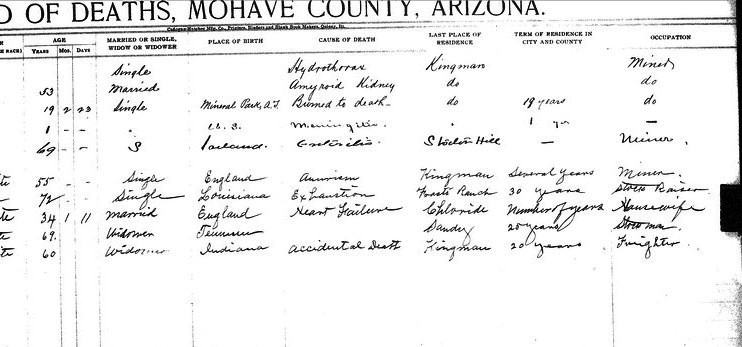 D OF DEATHS, MOHAVE COUNTY, ARIZONA.
AGE MARRIED OR SINGLE, WIDOW OR WIDOWER PLACE OF BIRTH CAUSE OF DEATH LAST PLACE OF RESIDENCE TERM OF RESIDENCE IN CITY AND COUNTY OCCUPATION
YEARS MOS. DAYS
Single Hydrothorax Kingman Miner
53 Married Amyroid Kidney do do
19 2 23 Single Mineral Park, A.T. Burned to death do 19 years do
1 - - " U.S. Meningitis " 1 yr —
69 - - S Ireland Stockton Hill — Miner
te 55 - - Single England Kingman Several years Miner
te 72 Single Louisiana Exhaustion Ranch 30 years Stock Raiser
te 34 1 11 Married England Heart Failure Chloride Number of years Housewife
te 69. Widower Sandy 25 years
te 60 Widower Indiana accidental Kingman 20 years Freighter